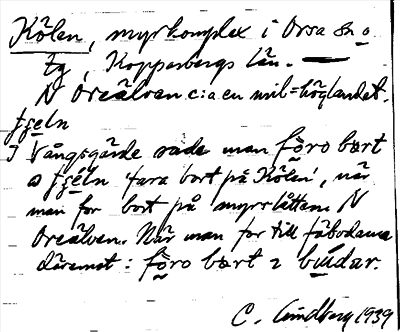 Kölen, myrkomplex i Orsa sn o.
tg, Kopparbergs län. —
N Oreälven c:a en mil=höglandet.
fʒeln
I Vångsgärde sade man föro bort
o fʒéln 'fara bort på Kölen', när
man for bort på myrslåttern N
Oreälven. När man for till fäbodarna
däremot: föro bort 2 búdar.
C. Lindberg 1939